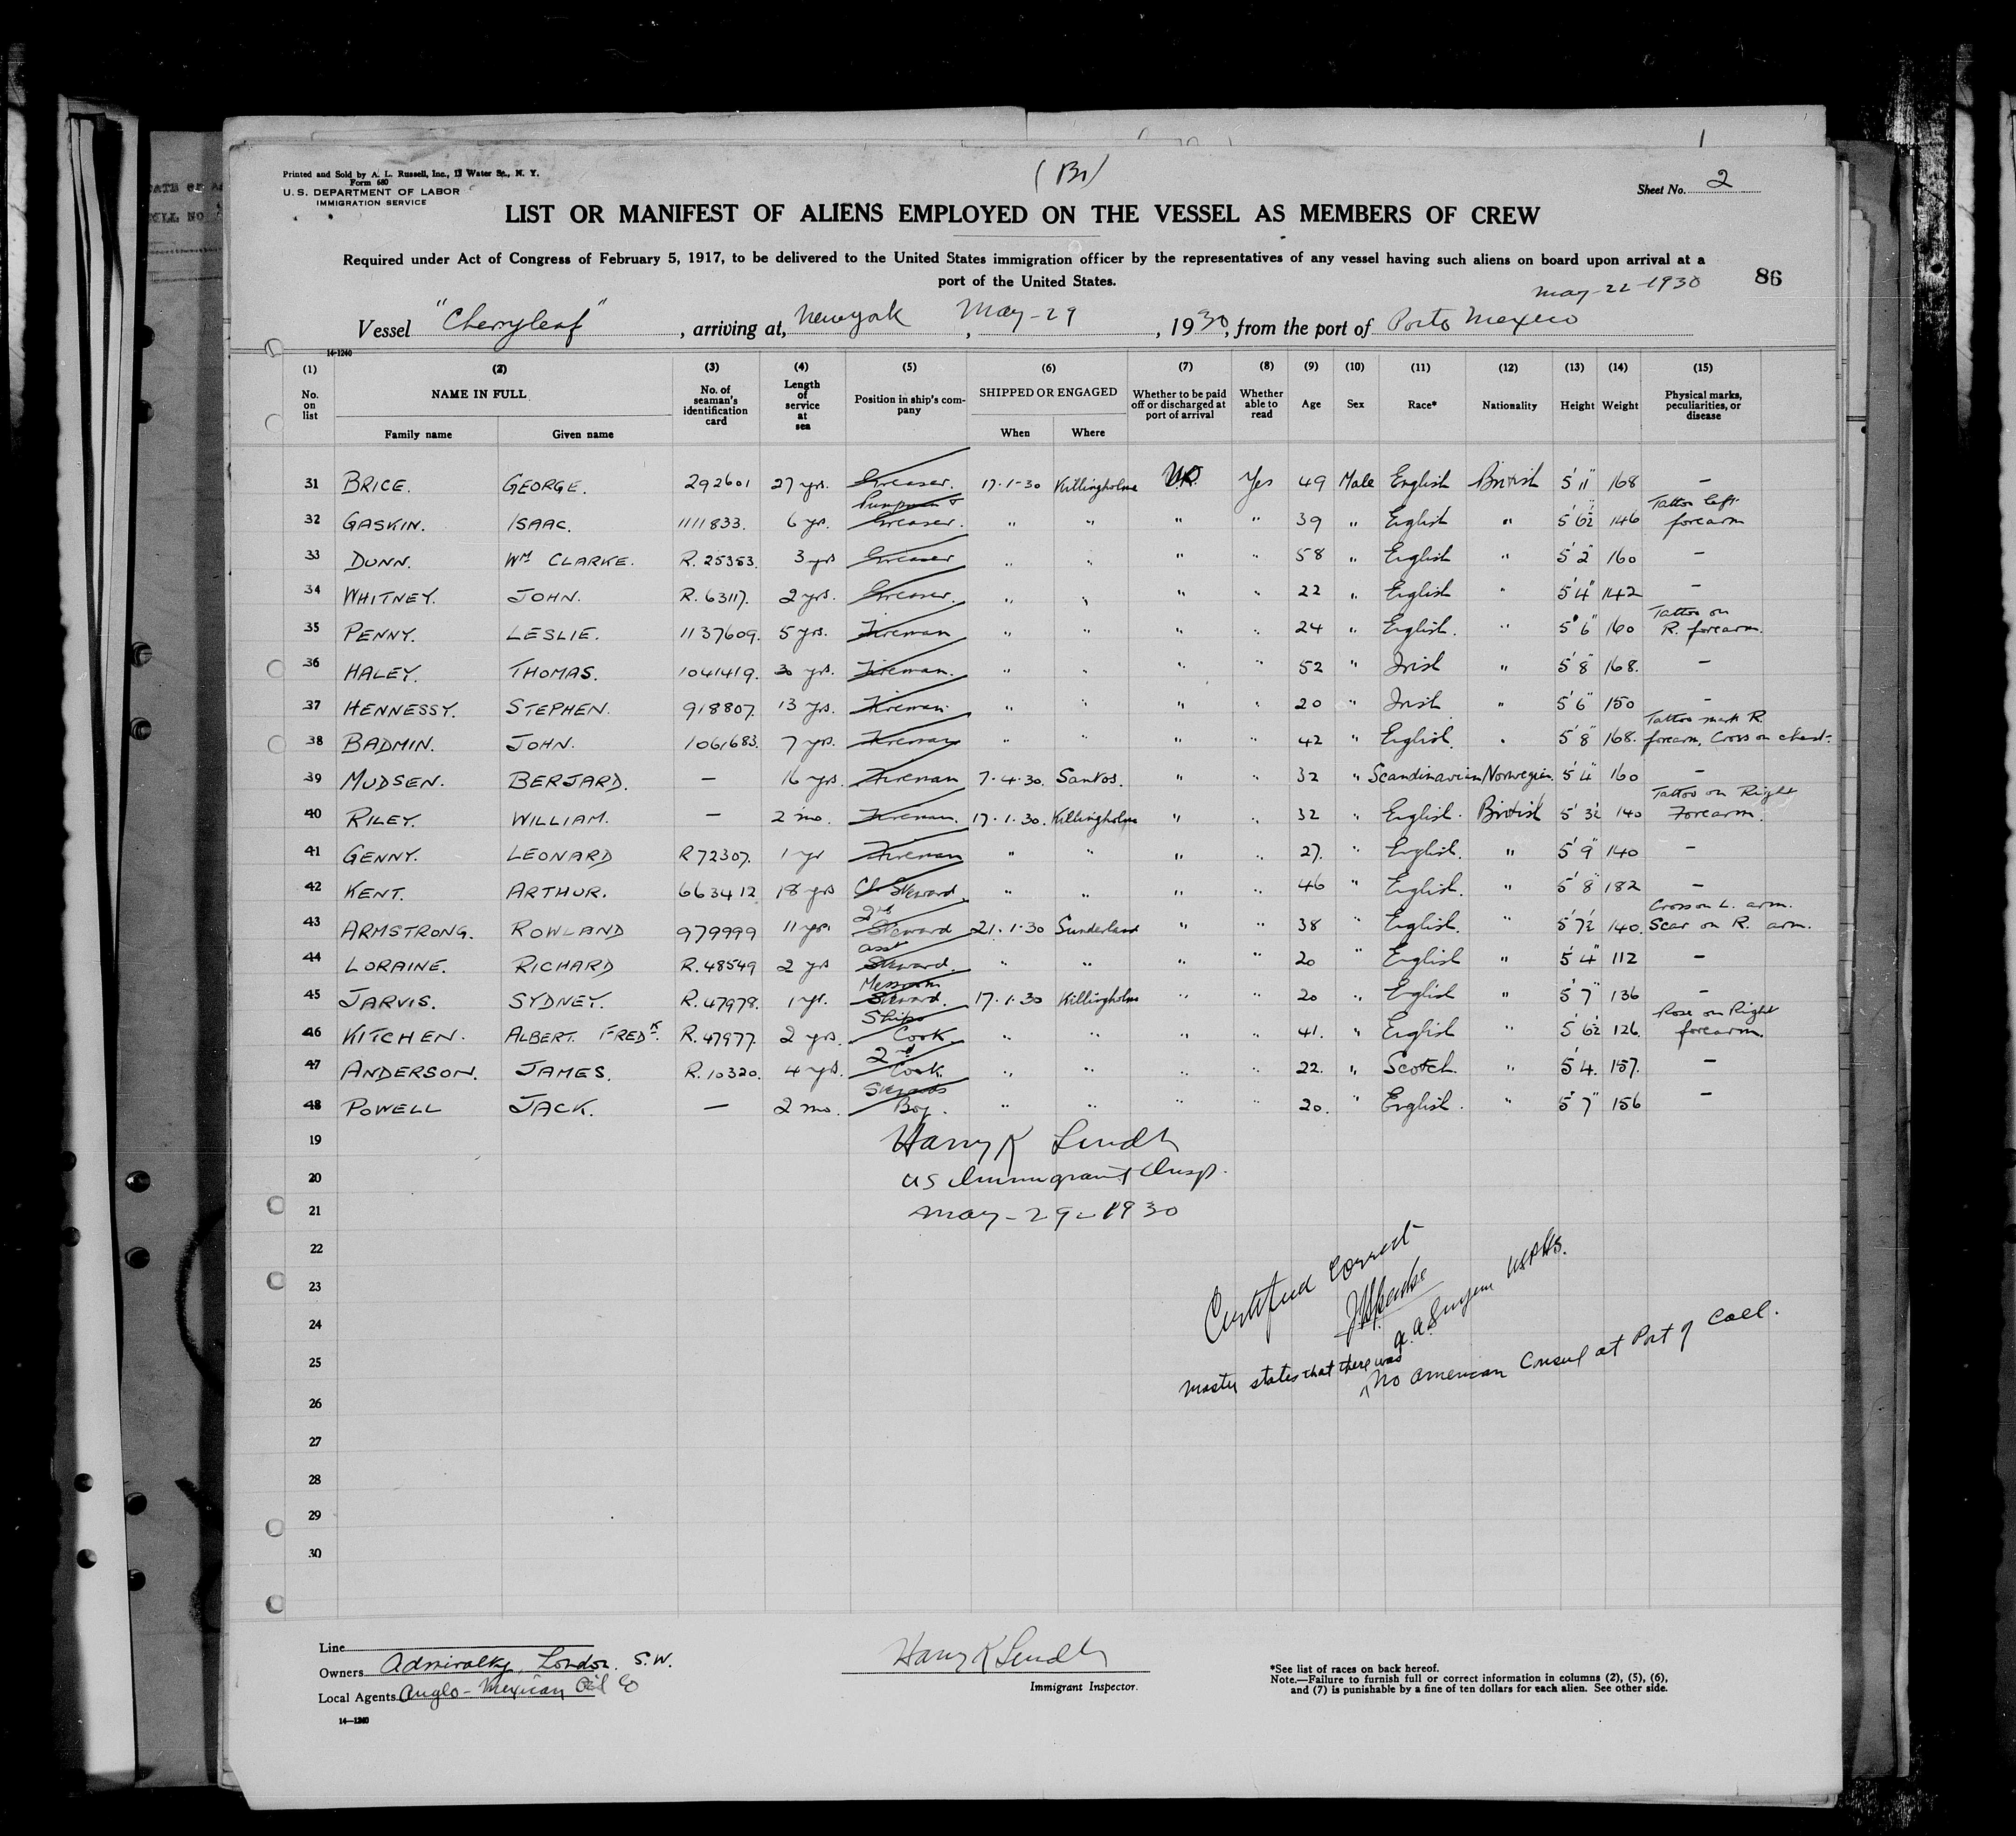 Printed and Sold by A. L. Russell, Inc., 13 Water St., N. Y.
Form 680
U. S. DEPARTMENT OF LABOR
IMMIGRATION SERVICE
(Br)
Sheet No. 2
LIST OR MANIFEST OF ALIENS EMPLOYED ON THE VESSEL AS MEMBERS OF CREW
Required under Act of Congress of February 5, 1917, to be delivered to the United States immigration officer by the representatives of any vessel having such aliens on board upon arrival at a
port of the United States.
86
May-22-1930
Vessel "Cherryleaf", arriving at, New York, May-29, 1930, from the port of Porto Mexico
14-1240
(1) (2) (3) (4) (5) (6) (7) (8) (9) (10) (11) (12) (13) (14) (15)
No. on list NAME IN FULL No. of seaman's identification card Length of service at sea Position in ship's company SHIPPED OR ENGAGED Whether to be paid off or discharged at port of arrival Whether able to read Age Sex Race* Nationality Height Weight Physical marks, peculiarities, or disease
Family name Given name When Where
31 BRICE. GEORGE. 292601 27 yrs. Greaser. 17-1-30 Killingholme Yes 49 Male English British 5'11" 168 –
32 GASKIN. ISAAC. 1111833. 6 yrs. Pumpman & Greaser. " " " " 39 " English " 5'6½" 146 Tattoo left forearm
33 DUNN. Wᴹ CLARKE. R. 25353. 3 yrs Greaser " " " " 58 " English " 5'2" 160 –
34 WHITNEY. JOHN. R. 63117. 2 yrs. Greaser. " " " " 22 " English " 5'4" 142 –
35 PENNY. LESLIE. 1137609. 5 yrs. Fireman " " " " 24 " English. " 5'6" 160 Tattoo on R. forearm.
36 HALEY. THOMAS. 1041419. 30 yrs. Fireman. " " " " 52 " Irish " 5'8" 168. –
37 HENNESSY. STEPHEN. 918807. 13 yrs. Fireman " " " " 20 " Irish " 5'6" 150 –
38 BADMIN. JOHN. 1061683. 7 yrs. Fireman " " " " 42 " English. " 5'8" 168. Tattoo mark R. forearm, Cross on chest.
39 MUDSEN. BERJARD. – 16 yrs. Fireman 7.4.30. Santos. " " 32 " Scandinavian Norwegian. 5'4" 160 –
40 RILEY. WILLIAM. – 2 mo. Fireman. 17.1.30. Killingholme " " 32 " English. British 5'3½ 140 Tattoo on Right Forearm.
41 GENNY. LEONARD R 72307. 1 yr Fireman " " " " 27. " English. " 5'9" 140 –
42 KENT. ARTHUR. 663412 18 yrs Ch. Steward. " " " " 46 " English. " 5'8" 182 –
43 ARMSTRONG. ROWLAND 979999 11 yrs 2nd Steward 21.1.30 Sunderland " " 38 " English. " 5'7½ 140. Cross on L. arm. Scar on R. arm.
44 LORAINE. RICHARD R. 48549 2 yrs asst Steward. " " " " 20 " English " 5'4" 112 –
45 JARVIS. SYDNEY. R. 47978. 1 yr. Messroom Steward. 17.1.30 Killingholme " " 20 " English " 5'7" 136 –
46 KITCHEN. ALBERT FREDᴷ. R. 47977. 2 yrs. Ships Cook. " " " " 41. " English " 5'6½ 126. Rose on Right forearm.
47 ANDERSON. JAMES. R. 10320. 4 yrs. 2nd Cook. " " " " 22. " Scotch " 5'4. 157. –
48 POWELL JACK. – 2 mo. Stewards Boy. " " " " 20. " English. " 5'7" 156 –
19
20
21
22
23
24
25
26
27
28
29
30
Harry K Lindh
US Immigrant Insp.
May-29-1930
Certified correct
a. a. Surgeon USPHS.
Master states that there was no American Consul at Port of Call.
Line
Owners Admiralty, London. S.W.
Local Agents Anglo-Mexican Oil Co
14—1240
Harry K Lindh
Immigrant Inspector.
*See list of races on back hereof.
Note.—Failure to furnish full or correct information in columns (2), (5), (6),
and (7) is punishable by a fine of ten dollars for each alien. See other side.